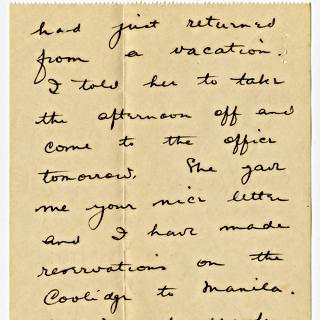 had just returned
from a vacation.
I told her to take
the afternoon off and
come to the office
tomorrow. She gave
me your nice letter
and I have made
reservations on the
Coolidge to Manila.